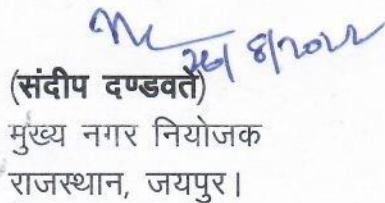 26/8/2022
(संदीप दण्डवते)
मुख्य नगर नियोजक
राजस्थान, जयपुर।